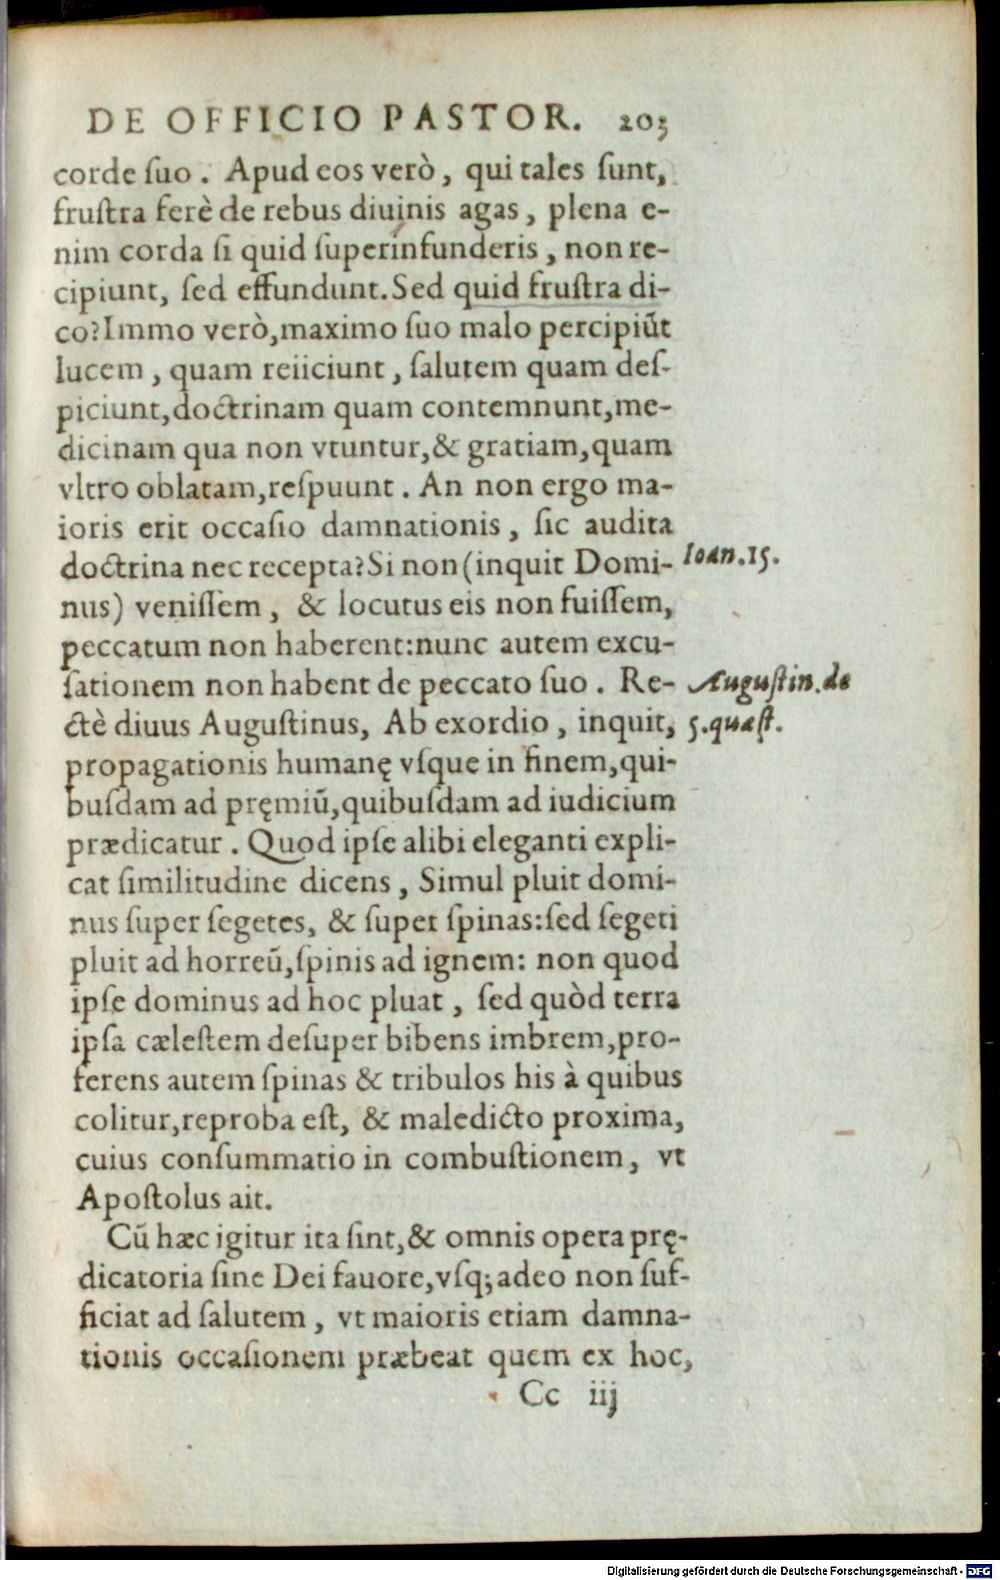 DE OFFICIO PASTOR. 203
corde ſuo. Apud eos verò, qui tales ſunt,
fruſtra ferè de rebus diuinis agas, plena e-
nim corda ſi quid ſuperinfunderis, non re-
cipiunt, ſed effundunt. Sed quid fruſtra di-
co? Immo verò, maximo ſuo malo percipiūt
lucem, quam reiiciunt, ſalutem quam deſ-
piciunt, doctrinam quam contemnunt, me-
dicinam qua non vtuntur, & gratiam, quam
vltro oblatam, reſpuunt. An non ergo ma-
ioris erit occaſio damnationis, ſic audita
doctrina nec recepta? Si non (inquit Domi-
Ioan.15.
nus) veniſſem, & locutus eis non fuiſſem,
peccatum non haberent: nunc autem excu-
ſationem non habent de peccato ſuo. Re-
Auguſtin. de
ctè diuus Auguſtinus, Ab exordio, inquit,
5. quæſt.
propagationis humanę vſque in finem, qui-
buſdam ad pręmiū, quibuſdam ad iudicium
prædicatur. Quod ipſe alibi eleganti expli-
cat ſimilitudine dicens, Simul pluit domi-
nus ſuper ſegetes, & ſuper ſpinas: ſed ſegeti
pluit ad horreū, ſpinis ad ignem: non quod
ipſe dominus ad hoc pluat, ſed quòd terra
ipſa cæleſtem deſuper bibens imbrem, pro-
ferens autem ſpinas & tribulos his à quibus
colitur, reproba eſt, & maledicto proxima,
cuius conſummatio in combuſtionem, vt
Apoſtolus ait.
Cū hæc igitur ita ſint, & omnis opera prę-
dicatoria ſine Dei fauore, vſq; adeo non ſuf-
ficiat ad ſalutem, vt maioris etiam damna-
tionis occaſionem præbeat quem ex hoc,
Cc iij
Digitalisierung gefördert durch die Deutsche Forschungsgemeinschaft - DFG